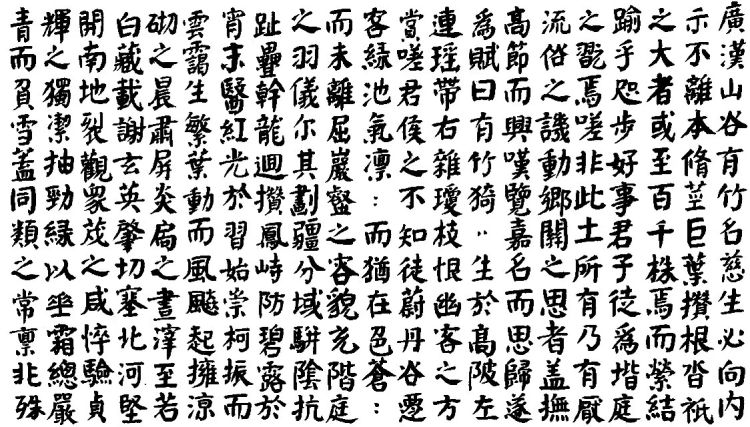 廣漢山谷有竹名慈生必向内
示不離本脩莖巨葉攢根沓祇
之大者或至百千株焉而縈結
踰乎咫步好事君子徒爲堦庭
之翫焉嗟非此土所有乃有厭
流俗之譏動鄉關之思者蓋撫
高節而興嘆覽嘉名而思歸遂
爲賦曰有竹猗:生於高陂左
連瑶帶右雜瓊枝恨幽客之方
賞嗟君侯之不知徒蔚丹谷遷
客緑池氣凛:而猶在色蒼:
而未離屈巖壑之容貌充階庭
之羽儀尔其劃疆分域駢陰抗
趾疊幹龍迴攢鳳峙防碧露於
宵末翳紅光於習始崇柯振而
雲靄生繁葉動而風飈起擁涼
砌之晨肅屏炎扃之晝滓至若
白藏載謝玄英肇切塞北河堅
開南地裂觀衆茂之咸悴驗貞
輝之獨潔抽勁緣以垂霜總嚴
青而負雪蓋同類之常稟非殊